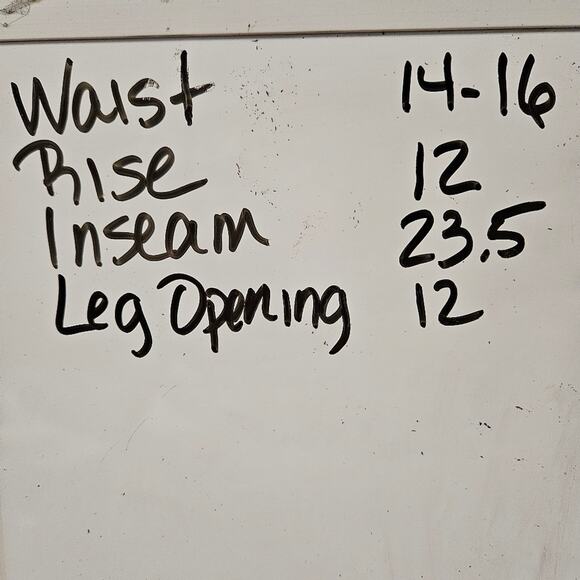 Waist 14-16
Rise 12
Inseam 23.5
Leg Opening 12